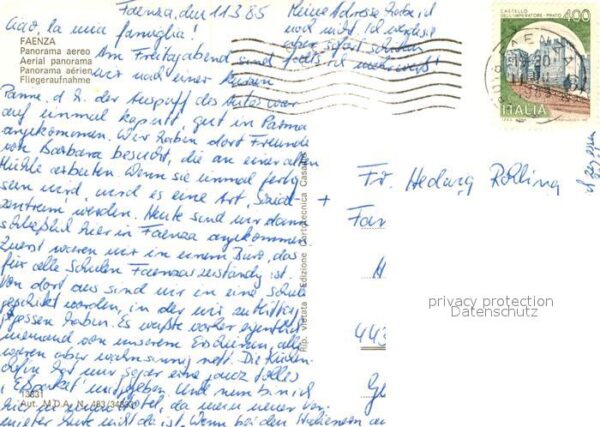 Faenza, den 11.3.85
Ciao, la mia famiglia!
Am Freitagabend sind
wir nach einer kurzen
Panne, d.h. der Auspuff des Autos war
auf einmal kaputt, gut in Parma
angekommen. Wir haben dort Freunde
von Barbara besucht, die an einer alten
Mühle arbeiten. Wenn sie einmal fertig
sein wird, wird es eine Art Sozial-
zentrum werden. Heute sind wir dann
schließlich hier in Faenza angekommen.
Zuerst waren wir in einem Büro, das
für alle Schulen Faenzas zuständig ist.
Von dort aus sind wir in eine Schule
geschickt worden, in der wir zu Mittag
gegessen haben. Es wußte vorher eigentlich
niemand von unserem Erscheinen, alle
waren aber wahnsinnig nett. Die Küchen-
chefin hat uns sogar eine ganz tolles
"Eßpaket" mitgegeben. Und nun bin ich
hier in einem Hotel, da mein neuer Ver-
mieter heute nicht da ist. Wenn bei den Italienern
Meine Adresse habe ich
noch nicht. Ich
aber sofort schicken
falls ich mehr weiß!
FAENZA
Panorama aereo
Aerial panorama
Panorama aérien
Fliegeraufnahme
13631
Aut. M.D.A. N.
Rip. vietata Edizione Cartotecnica
CASTELLO
DELL'IMPERATORE - PRATO
400
ITALIA
Fr. Hedwig Rolling
Fa
H
443
Gl
privacy protection
Datenschutz